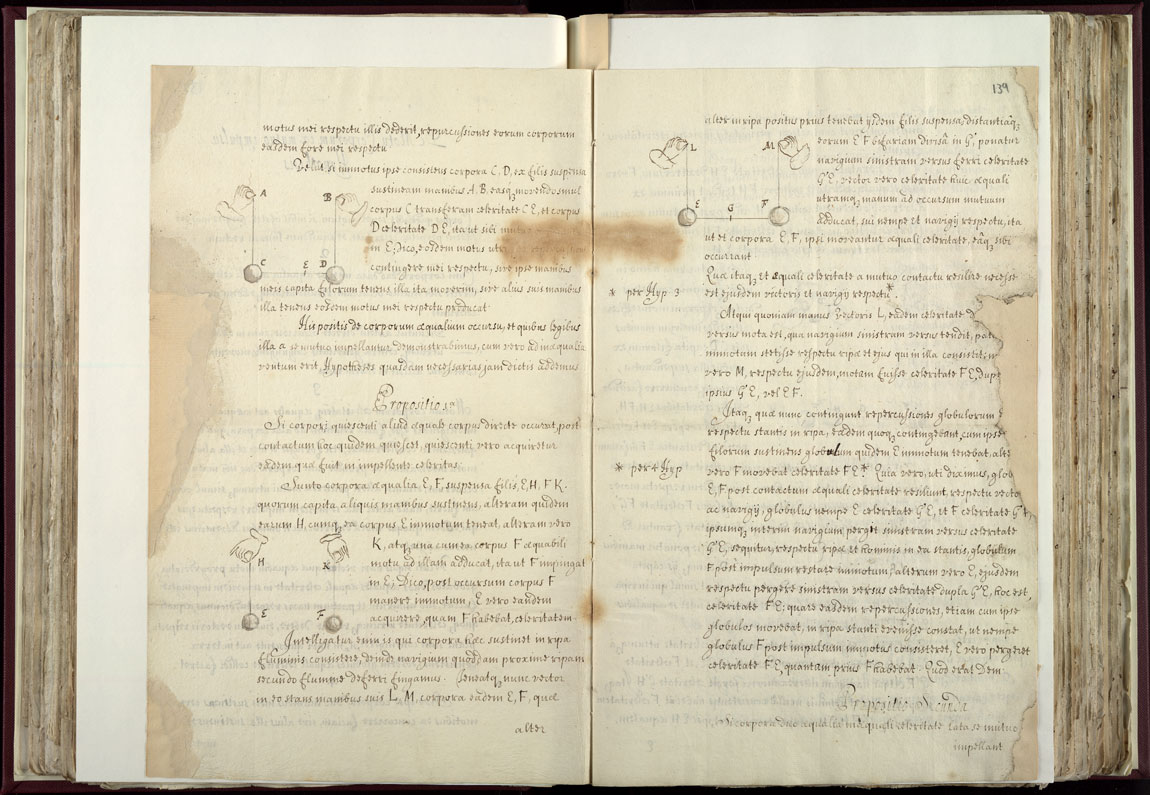 motus mei respectu illis dederit, repercussiones eorum corporum
easdem fore mei respectu
Velut si immotus ipse consistens corpora C, D, ex filis suspensa
sustineam manibus A, B, easq, movendo simul
A
B
corpus C transferam celeritate C E, et corpus
D celeritate D E, ita ut sibi mutuo
in E; Dico, eosdem motus utr
C E D
contingere mei respectu, sive ipse manibus
meis capita filorum tenens illa ita moverim, sive alius suis manibus
illa tenens eosdem motus mei respectu producat
His positis de corporum æqualium occursu, et quibus legibus
illa a se mutuo impellantur demonstrabimus, cum vero ad inæqualia
ventum erit, Hypotheses quasdam necessarias jam dictis addemus
Propositio 1a
Si corpori quiescenti aliud æquale corpus directe occurat, post
contactum hoc quidem quiescet, quiescenti vero acquiretur
eadem quæ fuit in impellente celeritas
Sunto corpora æqualia E, F, suspensa filis, E, H, F K.
quorum capita aliquis manibus sustinens, alteram quidem
earum H, cumq, ea corpus E immotum teneat, alteram vero
K, atq, una cum ea corpus F æquabili
H
K
motu ad illam adducat, ita ut F impingat
in E; Dico, post occursum corpus F
manere immotum, E vero eandem
E
F
acquirere, quam F habebat, celeritatem.
Intelligatur enim is qui corpora hæc sustinet in ripa
fluminis consistere, deinde navigium quoddam proxime ripam
secundo flumine deferri fingamus. Teneatq, nunc vector
in eo stans manibus suis L, M, corpora eadem E, F, quæ
alter
139
alter in ripa positus prius tenebat ijsdem filis suspensa, distantiaq,
L
M
eorum E F bifariam divisa in G, ponatur
navigium sinistram versus ferri celeritate
G E, vector vero celeritate huic æquali
utramq, manum ad occursum mutuum
E G F
adducat, sui nempe et navigij respectu, ita
ut et corpora E, F, ipsi moveantur æquali celeritate, eâq, sibi
occurrant
Qua itaq, et æquali celeritate a mutuo contactu resilire necesse
* per Hyp 3
est ejusdem vectoris et navigij respectu*.
Atqui quoniam manus vectoris L, eadem celeritate d
versus mota est, qua navigium sinistram versus tendit, pat
immotam stetisse respectu ripæ et ejus qui in illa consistit, m
vero M, respectu ejusdem, motam fuisse celeritate F E, dupl
ipsius G E, vel E F.
Itaq, quæ nunc contingunt repercussiones globulorum E
respectu stantis in ripa, eædem quoq, contingebant, cum ipse
filorum sustinens globulum quidem E immotum tenebat, alte
* per 4 Hyp
vero F movebat celeritate F E*. Quia vero, uti diximus, glob
E, F post contactum æquali celeritate resiliunt, respectu vecto
ac navigij, globulus nempe E celeritate G E, et F celeritate G F
ipsumq, interim navigium pergit sinistram versus celeritate
G E, sequitur, respectu ripæ et hominis in ea stantis, globulum
F post impulsum restare immotum, alterum vero E, ejusdem
respectu pergere sinistram versus celeritate dupla G E, hoc est,
celeritate F E; quare easdem repercussiones, etiam cum ipse
globulos movebat, in ripa stanti evenisse constat, ut nempe
globulus F post impulsum immotus consisteret, E vero pergeret
celeritate F E, quantam prius F habebat. Quod erat Dem.
Propositio Secunda
Si corpora duo æqualia inæquali celeritate lata se mutuo
impellant